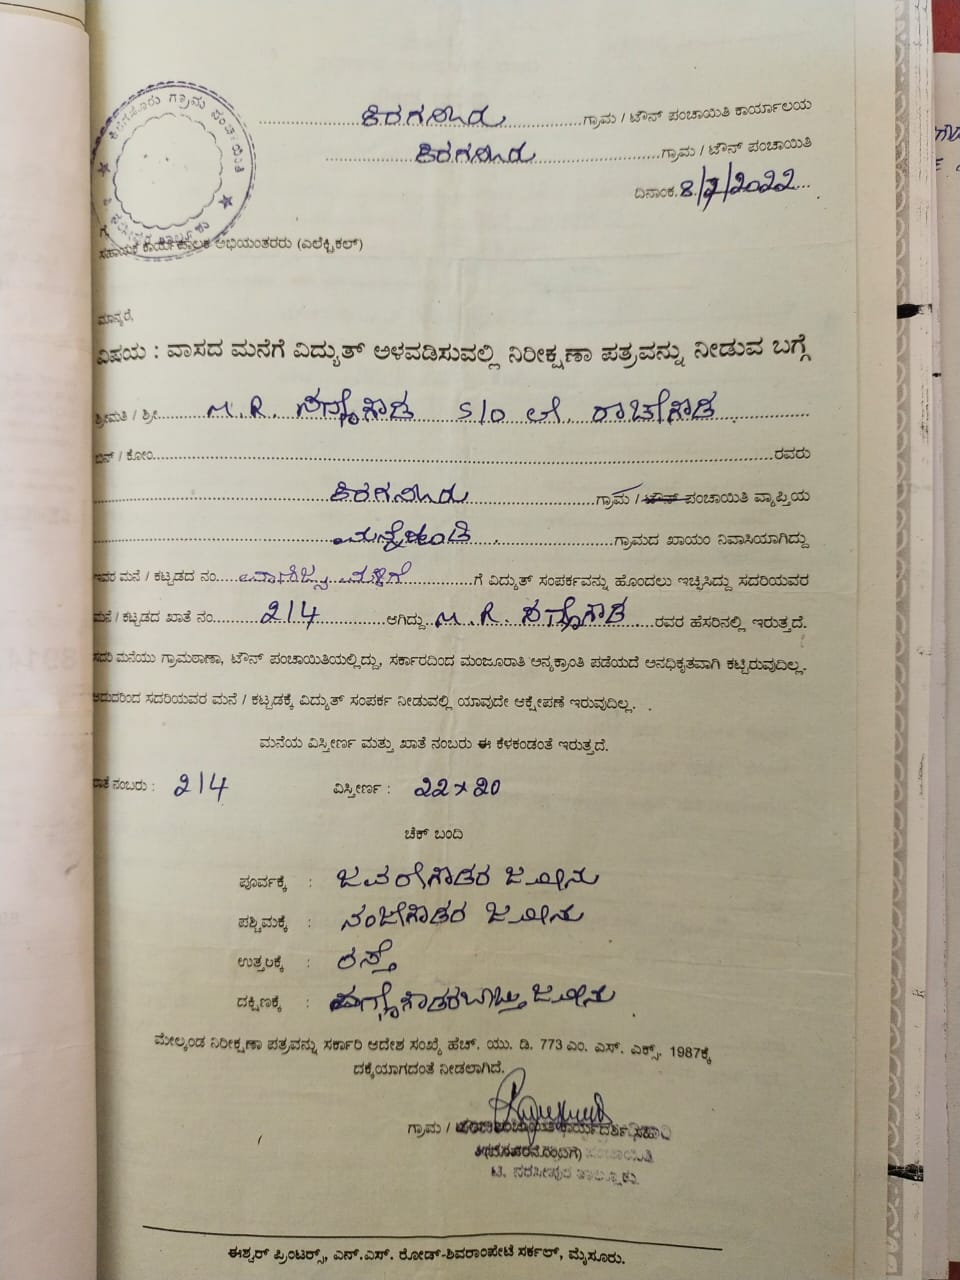 ಕಿರಗಸೂರು ಗ್ರಾಮ ಪಂಚಾಯಿತಿ
ಕಿರಗಸೂರು ಗ್ರಾಮ / ಟೌನ್ ಪಂಚಾಯಿತಿ ಕಾರ್ಯಾಲಯ
ಕಿರಗಸೂರು ಗ್ರಾಮ / ಟೌನ್ ಪಂಚಾಯಿತಿ
ದಿನಾಂಕ. 8/7/2022
ಗೆ,
ಸಹಾಯಕ ಕಾರ್ಯಪಾಲಕ ಅಭಿಯಂತರರು (ಎಲೆಕ್ಟ್ರಿಕಲ್)
ಮಾನ್ಯರೆ,
ವಿಷಯ : ವಾಸದ ಮನೆಗೆ ವಿದ್ಯುತ್ ಅಳವಡಿಸುವಲ್ಲಿ ನಿರೀಕ್ಷಣಾ ಪತ್ರವನ್ನು ನೀಡುವ ಬಗ್ಗೆ
ಶ್ರೀಮತಿ / ಶ್ರೀ M. R. S/o ಲೇ. ರಾಚೇಗೌಡ
ಬಿನ್ / ಕೋಂ ರವರು
ಕಿರಗಸೂರು ಗ್ರಾಮ / ಟೌನ್ ಪಂಚಾಯಿತಿ ವ್ಯಾಪ್ತಿಯ
ಗ್ರಾಮದ ಖಾಯಂ ನಿವಾಸಿಯಾಗಿದ್ದು
ಇವರ ಮನೆ / ಕಟ್ಟಡದ ನಂ. ವಾಣಿಜ್ಯ ಮಳಿಗೆ ಗೆ ವಿದ್ಯುತ್ ಸಂಪರ್ಕವನ್ನು ಹೊಂದಲು ಇಚ್ಛಿಸಿದ್ದು ಸದರಿಯವರ
ಮನೆ / ಕಟ್ಟಡದ ಖಾತೆ ನಂ. 214 ಆಗಿದ್ದು M. R. ರವರ ಹೆಸರಿನಲ್ಲಿ ಇರುತ್ತದೆ.
ಸದರಿ ಮನೆಯು ಗ್ರಾಮಠಾಣಾ, ಟೌನ್ ಪಂಚಾಯಿತಿಯಲ್ಲಿದ್ದು, ಸರ್ಕಾರದಿಂದ ಮಂಜೂರಾತಿ ಅನ್ಯಕ್ರಾಂತಿ ಪಡೆಯದೆ ಅನಧಿಕೃತವಾಗಿ ಕಟ್ಟಿರುವುದಿಲ್ಲ.
ಆದುದರಿಂದ ಸದರಿಯವರ ಮನೆ / ಕಟ್ಟಡಕ್ಕೆ ವಿದ್ಯುತ್ ಸಂಪರ್ಕ ನೀಡುವಲ್ಲಿ ಯಾವುದೇ ಆಕ್ಷೇಪಣೆ ಇರುವುದಿಲ್ಲ.
ಮನೆಯ ವಿಸ್ತೀರ್ಣ ಮತ್ತು ಖಾತೆ ನಂಬರು ಈ ಕೆಳಕಂಡಂತೆ ಇರುತ್ತದೆ.
ಖಾತೆ ನಂಬರು : 214 ವಿಸ್ತೀರ್ಣ : 22 x 20
ಚೆಕ್ ಬಂದಿ
ಪೂರ್ವಕ್ಕೆ : ಜವರೇಗೌಡರ ಜಮೀನು
ಪಶ್ಚಿಮಕ್ಕೆ : ನಂಜೇಗೌಡರ ಜಮೀನು
ಉತ್ತರಕ್ಕೆ : ರಸ್ತೆ
ದಕ್ಷಿಣಕ್ಕೆ : ಜಮೀನು
ಮೇಲ್ಕಂಡ ನಿರೀಕ್ಷಣಾ ಪತ್ರವನ್ನು ಸರ್ಕಾರಿ ಆದೇಶ ಸಂಖ್ಯೆ ಹೆಚ್. ಯು. ಡಿ. 773 ಎಂ. ಎಸ್. ಎಕ್ಸ್. 1987ಕ್ಕೆ
ದಕ್ಕೆಯಾಗದಂತೆ ನೀಡಲಾಗಿದೆ.
ಗ್ರಾಮ / ಪಂಚಾಯಿತಿ ಕಾರ್ಯದರ್ಶಿ ಸಹಿ
ಟಿ. ನರಸೀಪುರ ತಾಲ್ಲೂಕು
ಈಶ್ವರ್ ಪ್ರಿಂಟರ್ಸ್, ಎನ್.ಎಸ್. ರೋಡ್-ಶಿವರಾಂಪೇಟೆ ಸರ್ಕಲ್, ಮೈಸೂರು.